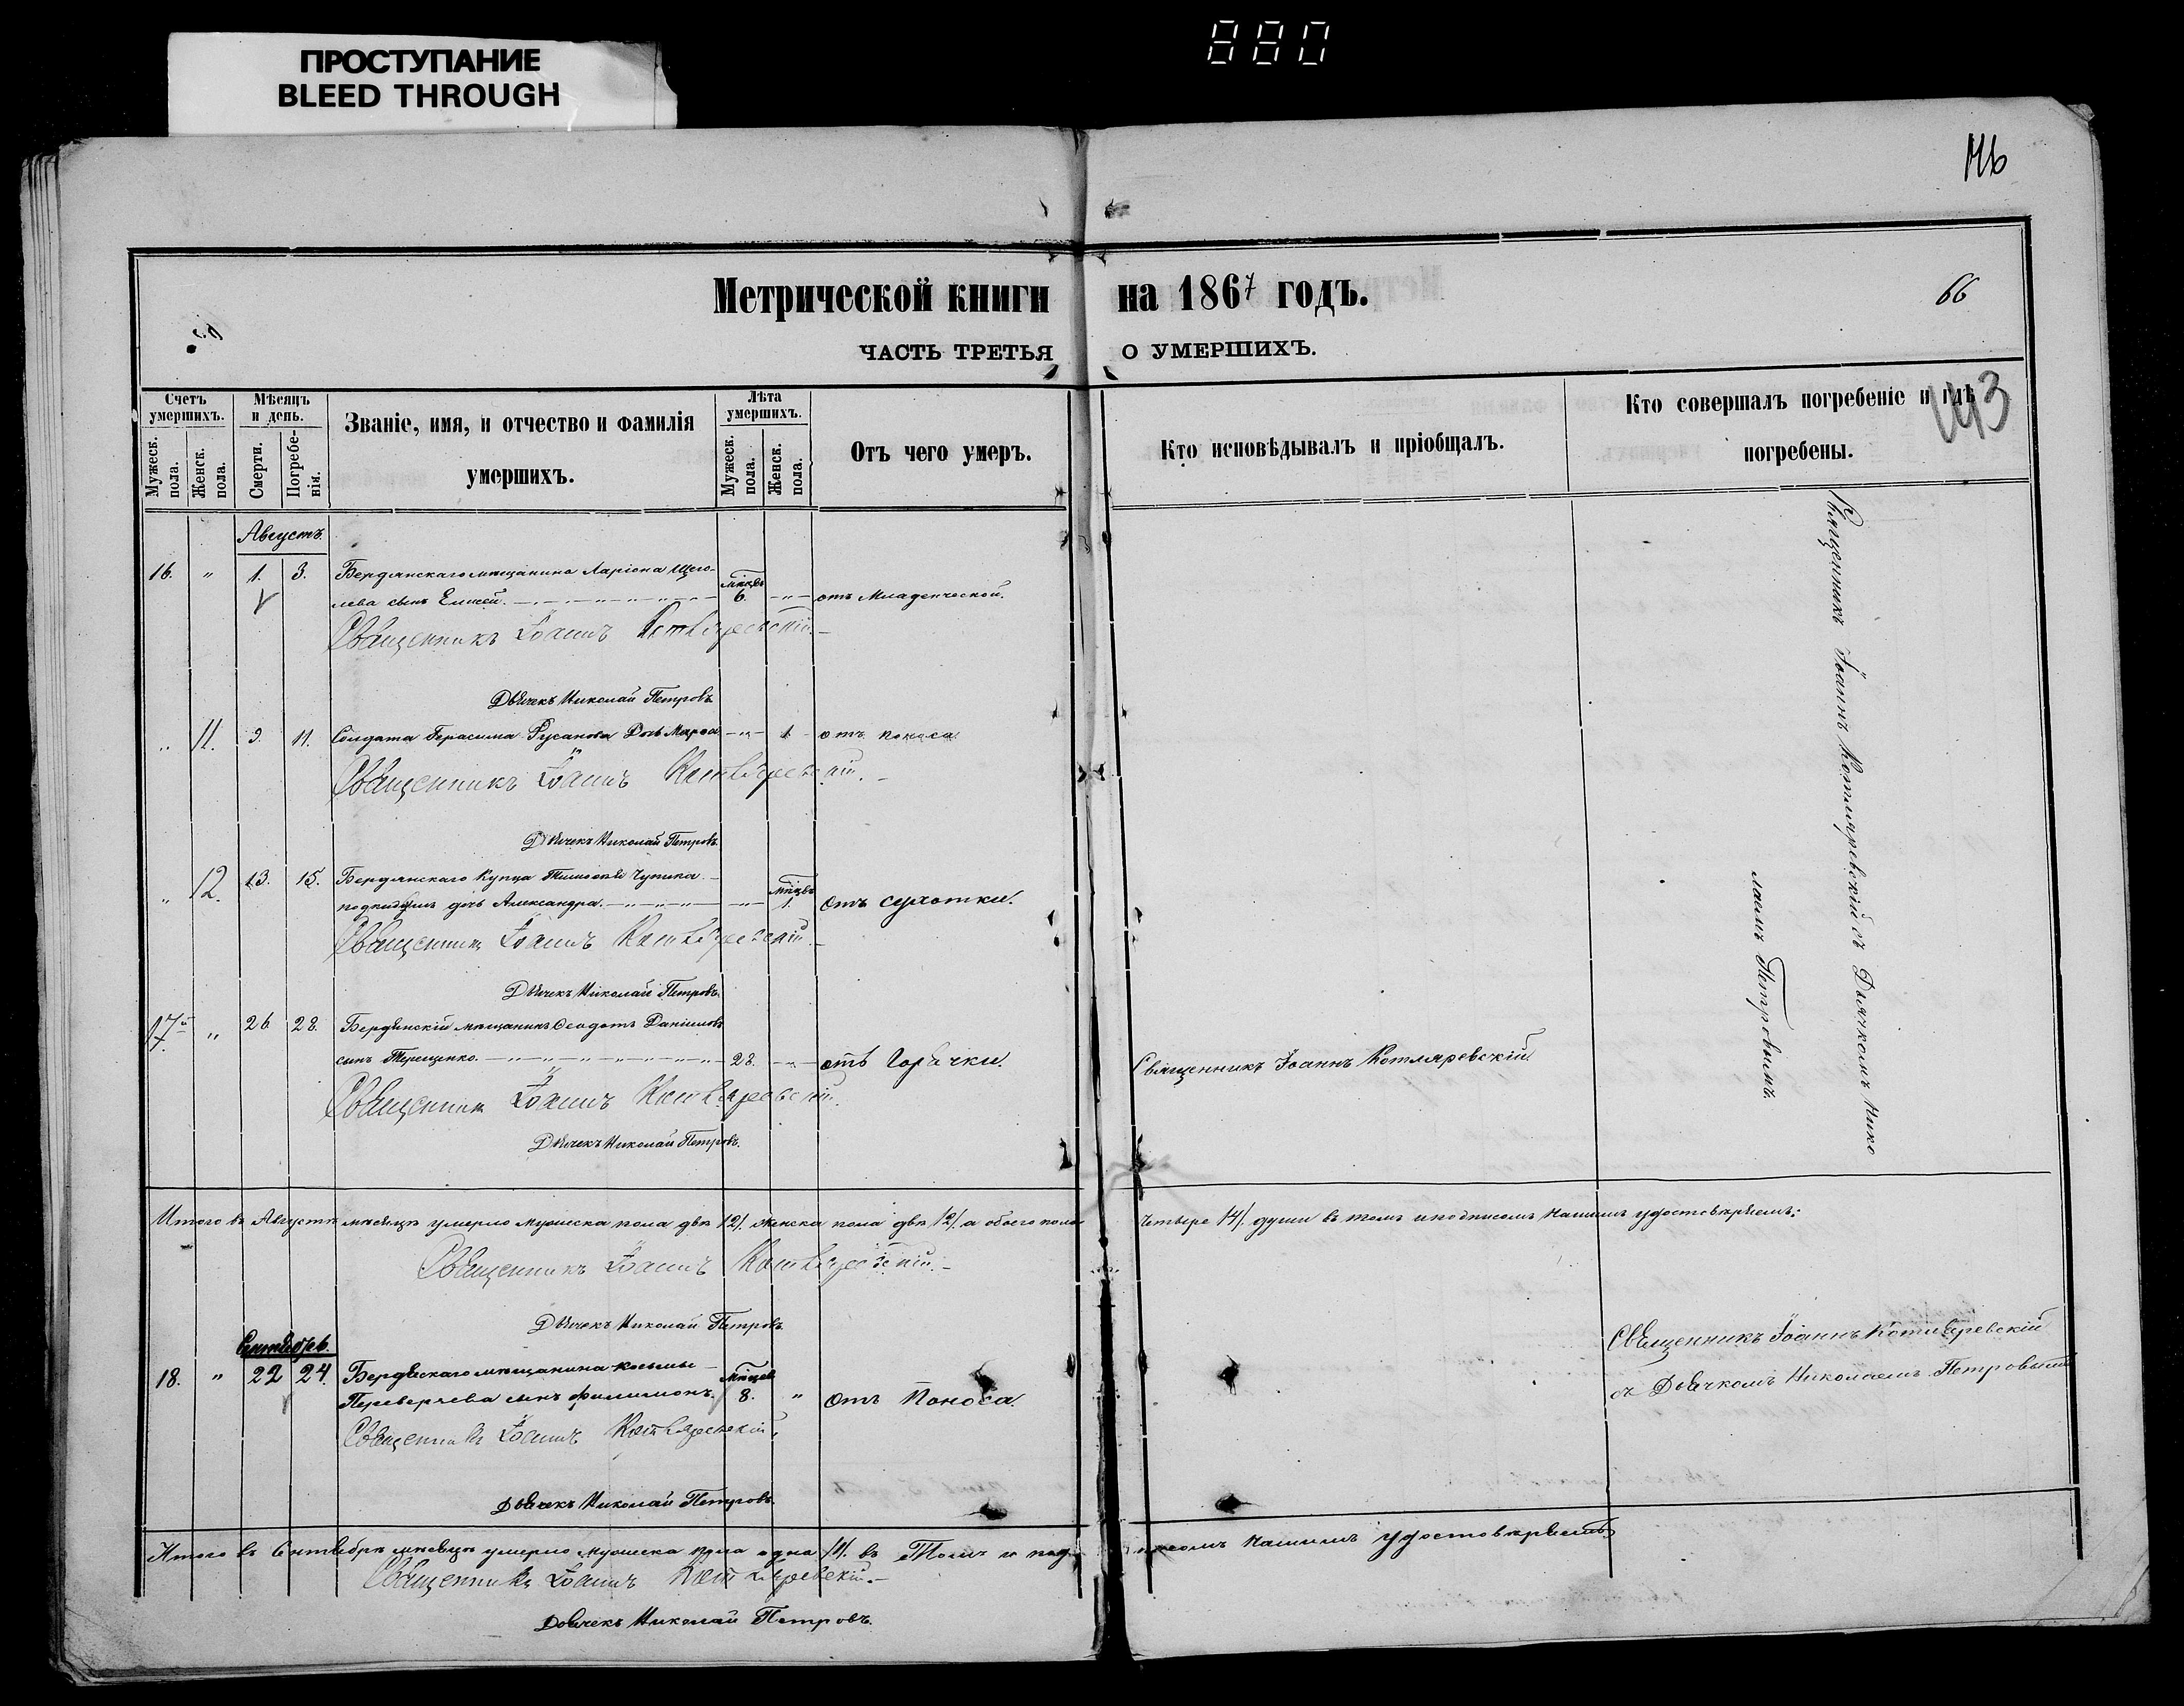 ПРОСТУПАНИЕ
BLEED THROUGH
880
146
Метрической книги на 1867 годъ.
66
ЧАСТЬ ТРЕТЬЯ О УМЕРШИХЪ.
143
Счетъ умершихъ.
Мужеск. пола.
Женск. пола.
Мѣсяцъ и день.
Смерти.
Погребенія.
Званіе, имя, и отчество и фамилія умершихъ.
Лѣта умершихъ.
Мужеск. пола.
Женск. пола.
Отъ чего умеръ.
Кто исповѣдывалъ и пріобщалъ.
Кто совершалъ погребеніе и гдѣ погребены.
Августъ.
16. " 1. 3. Бердянскаго мѣщанина Ларіона Щего-
лева сынъ Елисей. мѣсцв 6. " отъ Младенческой.
Священникъ Іоаннъ Котляревскій.
Дьячекъ Николай Петровъ.
" 11. 9. 11. Солдата Герасима Русанова Дочь Марѳа " 1 отъ поноса.
Священникъ Іоаннъ Котляревскій.
Дьячекъ Николай Петровъ.
" 12. 13. 15. Бердянскаго Купца Тимоѳея Чупика
дочь Александра. " мѣсцв 1. отъ сухотки.
Священникъ Іоаннъ Котляревскій.
Дьячекъ Николай Петровъ.
17й " 26 28. Бердянскій мѣщанинъ Ѳеодотъ Даніиловъ
сынъ Терещенко. 28. " отъ Горячки. Священникъ Іоаннъ Котляревскій
Священникъ Іоаннъ Котляревскій.
Дьячекъ Николай Петровъ.
Священникъ Іоаннъ Котляревскій съ Дьячкомъ Нико
лаемъ Петровымъ.
Итого въ Августѣ мѣсяцѣ умерло мужеска пола двѣ /2/. женска пола двѣ /2/. а обоего пола четыре /4/. души въ томъ и подписомъ нашимъ удостовѣряемъ:
Священникъ Іоаннъ Котляревскій.
Дьячекъ Николай Петровъ.
Сентябрь.
18. " 22 24. Бердянскаго мѣщанина Косьмы
Переверчева сынъ Филимонъ. мѣсцев 8. " отъ Поноса.
Священникъ Іоаннъ Котляревскій
съ Дьячкомъ Николаемъ Петровымъ
Священникъ Іоаннъ Котляревскій.
Дьячекъ Николай Петровъ.
Итого въ Сентябрѣ мѣсяцѣ умерло мужеска пола одна /1/. въ Томъ и подписомъ нашимъ удостовѣряемъ
Священникъ Іоаннъ Котляревскій.
Дьячекъ Николай Петровъ.